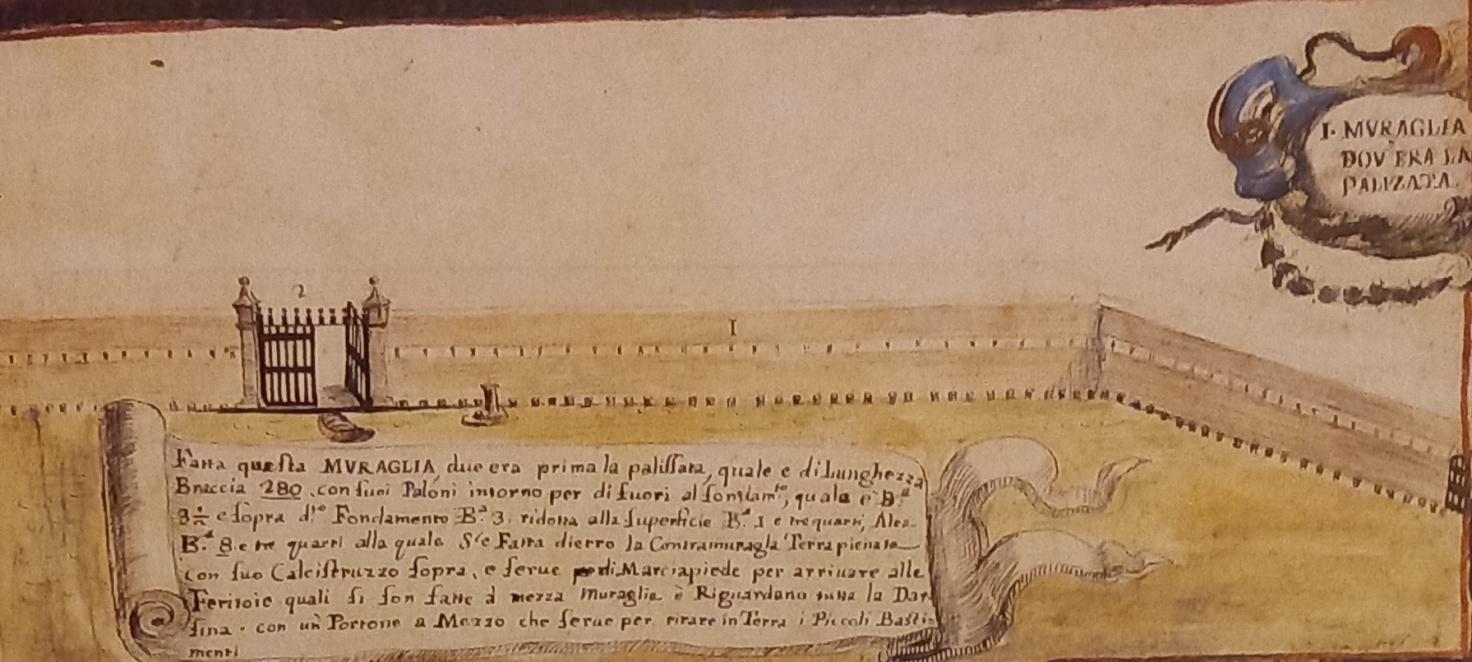 I. MVRAGLIA
DOV'ERA LA
PALIZATA.
2
I
Fatta questa MVRAGLIA, due era prima la palissata, quale e di Lunghezza
Braccia 280. con suoi Paloni intorno per di fuori al fondam.to, quale è B.a
3½ e sopra d.to Fondamento B.a 3. ridotta alla superficie B.a 1 e tre quarti, Alta
B.a 8. e tre quarti alla quale S'è Fatta dietro la Contramuragla Terrapienata
con suo Calcistruzzo sopra, e serue per di Marciapiede per arriuare alle
Feritoie quali si son fatte à mezza Muraglia è Riguardano tutta la Dar-
sina. con un Portone a Mezzo che serue per tirare in Terra i Piccoli Basti-
menti